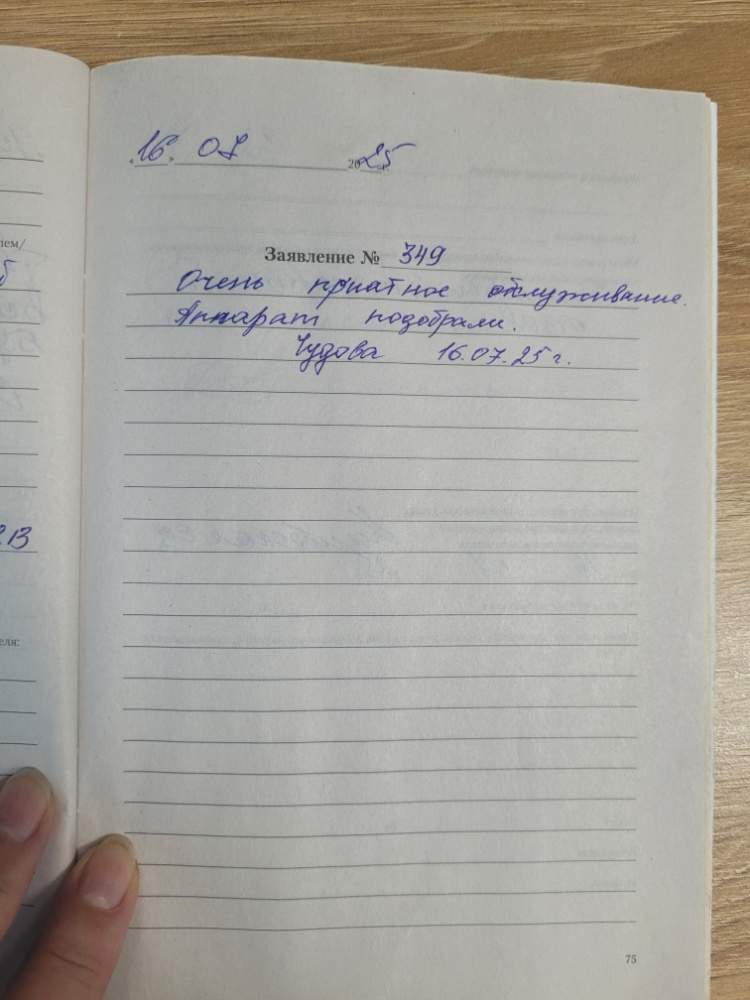 «16» 07 2025
Заявление № 349
Очень приатное обслуживание.
Аппарат подобрали.
Чудова 16.07.25 г.
75